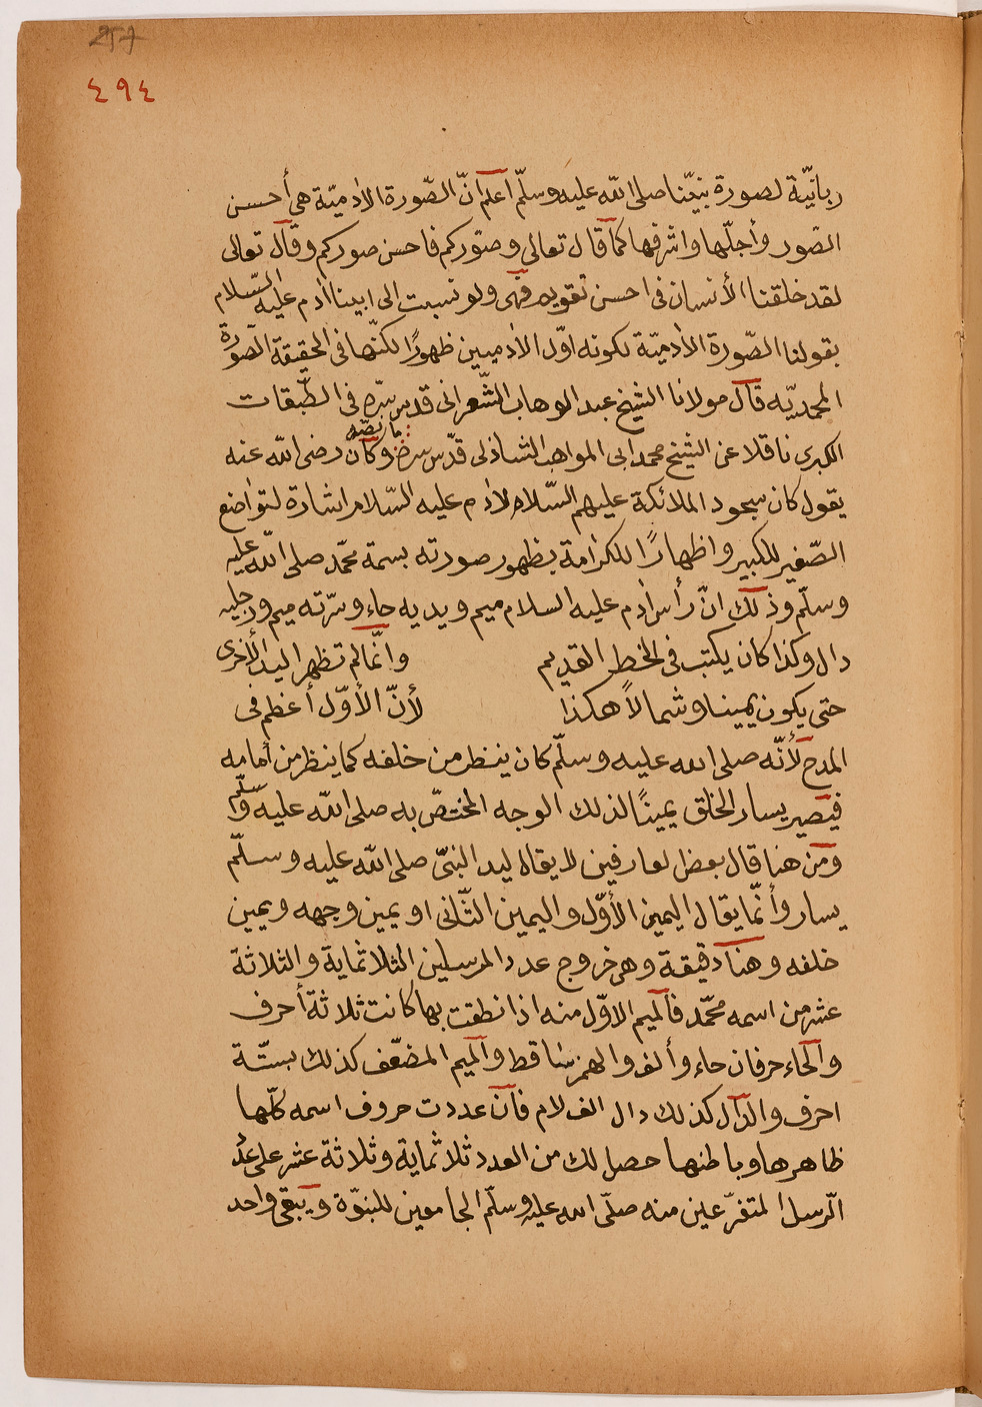 257
٤٩٤
ربانيّة لصورة نبيّنا صلى الله عليه وسلّم اعلم انّ الصّورة الاٰدميّة هى أحسن
الصّور وأجلّها واشرفها كما قال تعالى وصوّركم فاحسن صوركم وقال تعالى
لقد خلقنا الأنسان فى احسن تقويم فهى ولو نسبت الى ابينا اٰدم عليه السّلام
بقولنا الصّورة الاٰدميّة لكونه اوّل الاٰدميين ظهورًا لكنّها فى الحقيقة الصّورة
المحمديّه قال مولانا الشيخ عبد الوهاب الشّعرانى قدس سّره فى الطّبقات
الكبرى ناقلا عن الشّيخ محمد ابى المواهب الشاذلى قدّس سره ما نصّه وكان رضى الله عنه
يقول كان سجود الملائكة عليهم السّلام لاٰدم عليه السّلام اشارة لتواضع
الصّغير للكبير واظهارًا للكرامة بظهور صورته بسمة محمّد صلى الله عليه
وسلّم وذلك انّ رأس اٰدم عليه السلام ميم ويديه حاء وسرّته ميم ورجليه
دال وكذا كان يكتب فى الخط القديم وانّما لم تظهر اليد الأخرى
حتى يكون يمينا وشمالاً هكذا لأنّ الأوّل أعظم فى
المدح لأنّه صلى الله عليه وسلّم كان ينظر من خلفه كما ينظر من أمامه
فيصير يسار الخلق يمينًا لذلك الوجه المختصّ به صلى الله عليه وسلّم
ومن هنا قال بعض العارفين لا يقال ليد النبىّ صلى الله عليه وسلّم
يسار وأنّما يقال اليمين الأوّل واليمين الثّانى او يمين وجهه ويمين
خلفه وهنا دقيقة وهى خروج عدد المرسلين الثلاثماية والثلاثة
عشر من اسمه محمّد فالميم الاوّل منه اذا نطقت بها كانت ثلاثة أحرف
والحاء حرفان حاء وألف والهمز ساقط والميم المضعّف كذلك بستّة
احرف والدّال كذلك دال الف لام فان عددت حروف اسمه كلّها
ظاهرها وباطنها حصل لك من العدد ثلاثماية وثلاثة عشر على عدد
الرّسل المتفرّعين منه صلّى الله عليه وسلّم الجامعين للنبوّة ويبقى واحد